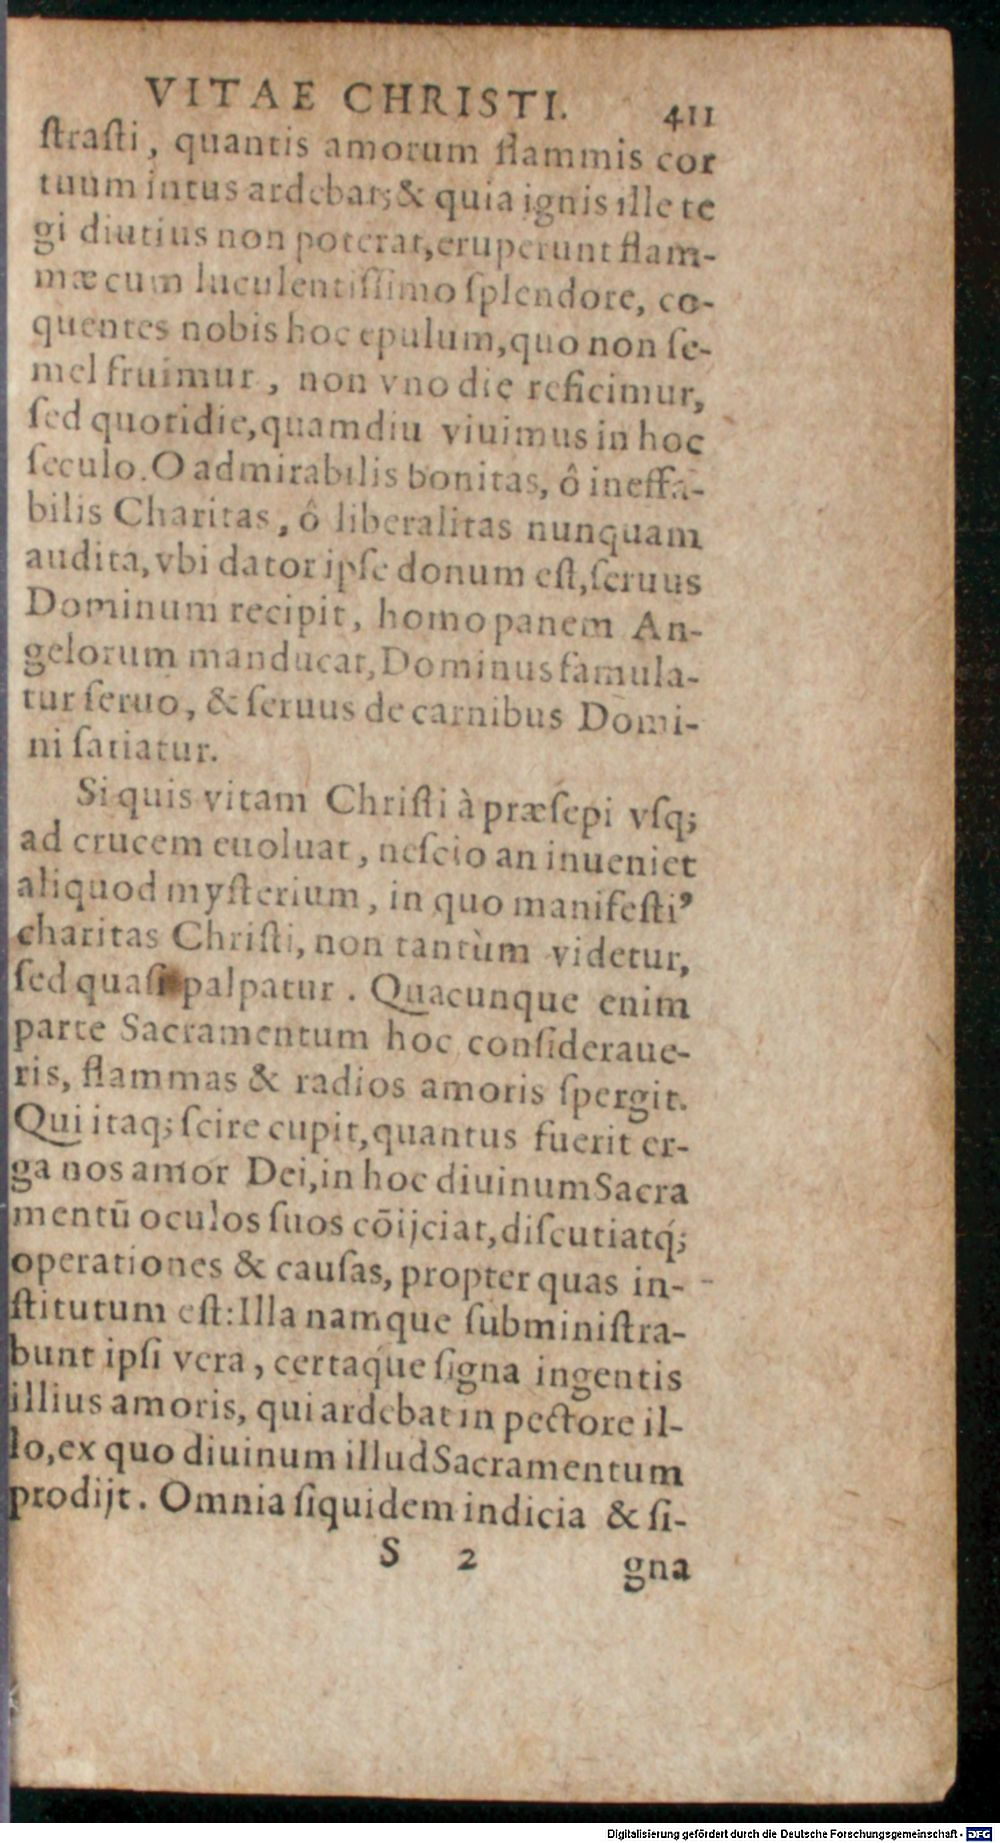 VITAE CHRISTI. 411
ſtraſti, quantis amorum flammis cor
tuum intus ardebat; & quia ignis ille te
gi diutius non poterat, eruperunt flam-
mæ cum luculentiſſimo ſplendore, co-
quentes nobis hoc epulum, quo non ſe-
mel fruimur, non vno die reficimur,
ſed quotidie, quamdiu viuimus in hoc
ſeculo. O admirabilis bonitas, ô ineffa-
bilis Charitas, ô liberalitas nunquam
audita, vbi dator ipſe donum eſt, ſeruus
Dominum recipit, homo panem An-
gelorum manducat, Dominus famula-
tur ſeruo, & ſeruus de carnibus Domi-
ni ſatiatur.
Si quis vitam Chriſti à præſepi vſq;
ad crucem euoluat, neſcio an inueniet
aliquod myſterium, in quo manifeſti⁹
charitas Chriſti, non tantùm videtur,
ſed quaſi palpatur. Quacunque enim
parte Sacramentum hoc conſideraue-
ris, flammas & radios amoris ſpergit.
Qui itaq; ſcire cupit, quantus fuerit er-
ga nos amor Dei, in hoc diuinum Sacra
mentū oculos ſuos cōijciat, diſcutiatq́;
operationes & cauſas, propter quas in-
ſtitutum eſt: Illa namque ſubminiſtra-
bunt ipſi vera, certaq́ue ſigna ingentis
illius amoris, qui ardebat in pectore il-
lo, ex quo diuinum illud Sacramentum
prodijt. Omnia ſiquidem indicia & ſi-
S 2 gna
Digitalisierung gefördert durch die Deutsche Forschungsgemeinschaft - DFG